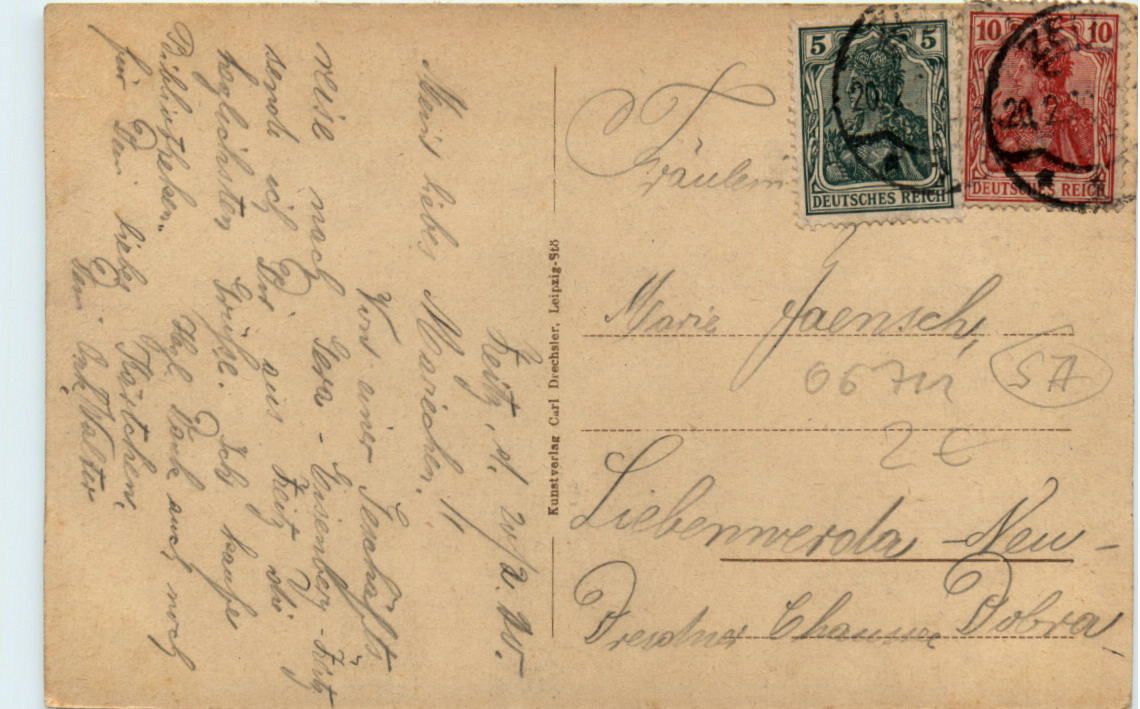 Zeitz, d. 20/2. 20.
Mein liebes Mariechen!
Von einer Geschäfts
reise nach Gera - Eisenberg -
sende ich Dir aus Zeitz die
herzlichsten Grüße. Ich kaufe
Herzl. Dank auch noch
für Dein liebes Kärtchen.
Dein Walter
Kunstverlag Carl Drechsler, Leipzig-Stö
5 5
DEUTSCHES REICH
10 10
DEUTSCHES REICH
20.2
20.2
Fräulein
Marie Jaensch,
06711
SA
2 €
Liebenwerda - Neu-
Dresdner Chaussee Dobra